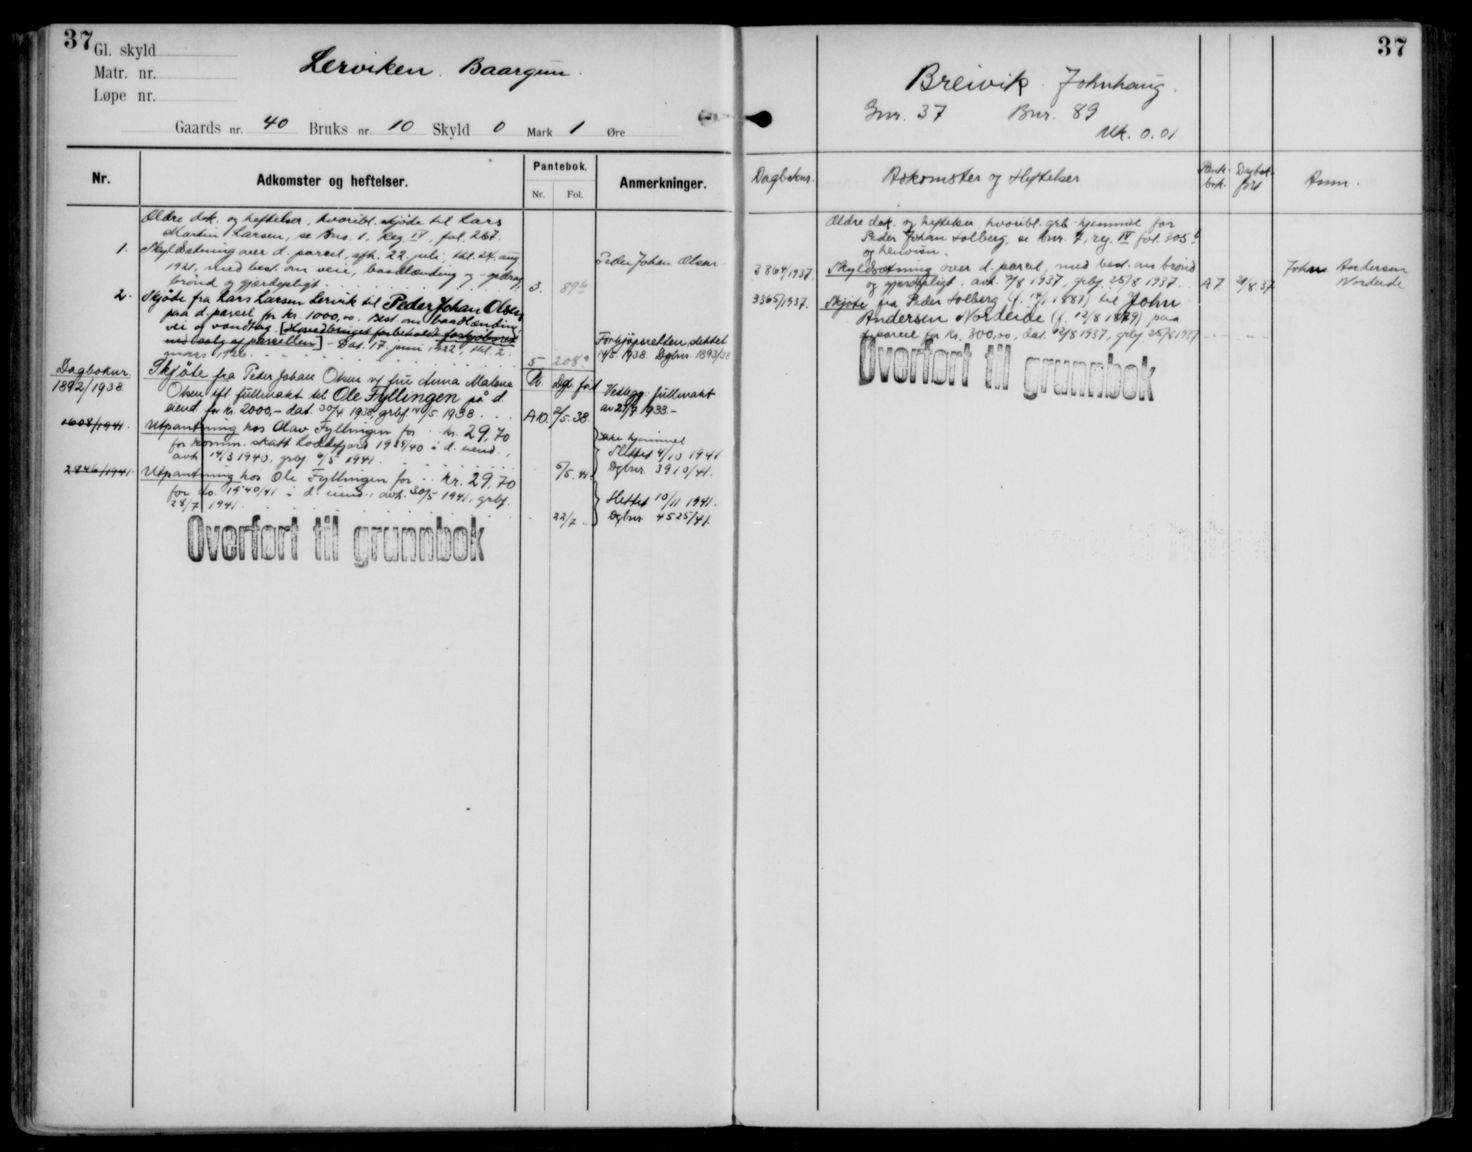 37
Gl. skyld
Matr. nr.
Løpe nr.
Lerviken. Baargun.
Gaards nr. 40 Bruks nr. 10 Skyld 0 Mark 1 Øre
Nr.
Adkomster og heftelser.
Pantebok.
Nr. Fol.
Anmerkninger.
Ældre dok. og heftelser, hvoribl. skjøte til Lars
Martin Larsen, se Bno. 1, Reg IV, fol. 267.
1. Skyldsetning over d. parcel, afh. 22 juli, thl. 24 aug.
1921, med best. om veie, baadlænding og
brønd og gjærdepligt. 3. 89b
Peder Johan Olsen
2. Skjøte fra Lars Larsen Lervik til Peder Johan Olsen
paa d. parcel for kr. 1000,00. Best. om baadlænding
vei og vandtag. [Hovedbruget forbeholdt forkjøbsret
ved salg af parcellen] - Dat. 17 juni 1922, thl. 2.
mars 1926. 5 208a
Forkjøpsretten slettet
14/5 1938. Dgbnr. 1893/38
Dagboknr.
1892/1938.
Skjøte fra Peder Johan Olsen v/ frue Anna Malene
Olsen ifl. fullmakt til Ole Fyllingen på d.
eiend. for kr. 2000,- dat. 30/4 1938, grbf. 14/5 1938.
R. Dgb. ført
A10. 2/5. 38.
Vedlegg: fullmakt
av 27/9 1933.-
1608/1941. Utpantning hos Olav Fyllingen for kr. 29,70
for komm. skatt Loddefjord 1939/40 i d. eiend.,
avh. 14/3 1940, grbf. 6/5 1941. 5/5. 41.
ikke hjemmel
Slettet 4/10 1941
Dgbnr. 3910/41.
2846/1941. Utpantning hos Ole Fyllingen for kr. 29.70
for do. 1940/41 i d. eiend., avh. 30/5 1941, grbf.
28/7 1941. 22/7
Slettet 10/11 1941.
Dgbnr. 4525/41.
Overført til grunnbok
37
Breivik. Johnhaug.
Gnr. 37 Bnr. 89
Mk. 0.01
Dagboknr.
Adkomster og Heftelser
Pantebok.
Dagbok ført
Anm.
Ældre dok. og heftelser hvoribl. grb. hjemmel for
Peder Johan Solberg, se bnr. 7, reg. IV fol. 305b
og henvisn.
3364/1937. Skyldsetning over d. parcel, med best. om brønd
og gjerdepligt. avh. 7/8 1937, grbf. 25/8 1937. A7 21/8.37
John Andersen
Nordeide
3365/1937. Skjøte fra Peder Solberg til John
Andersen Nordeide (f. 12/8 1879) paa
d. parcel for kr. 300,00, dat. 12/8 1937, grbf. 25/8 1937
Overført til grunnbok